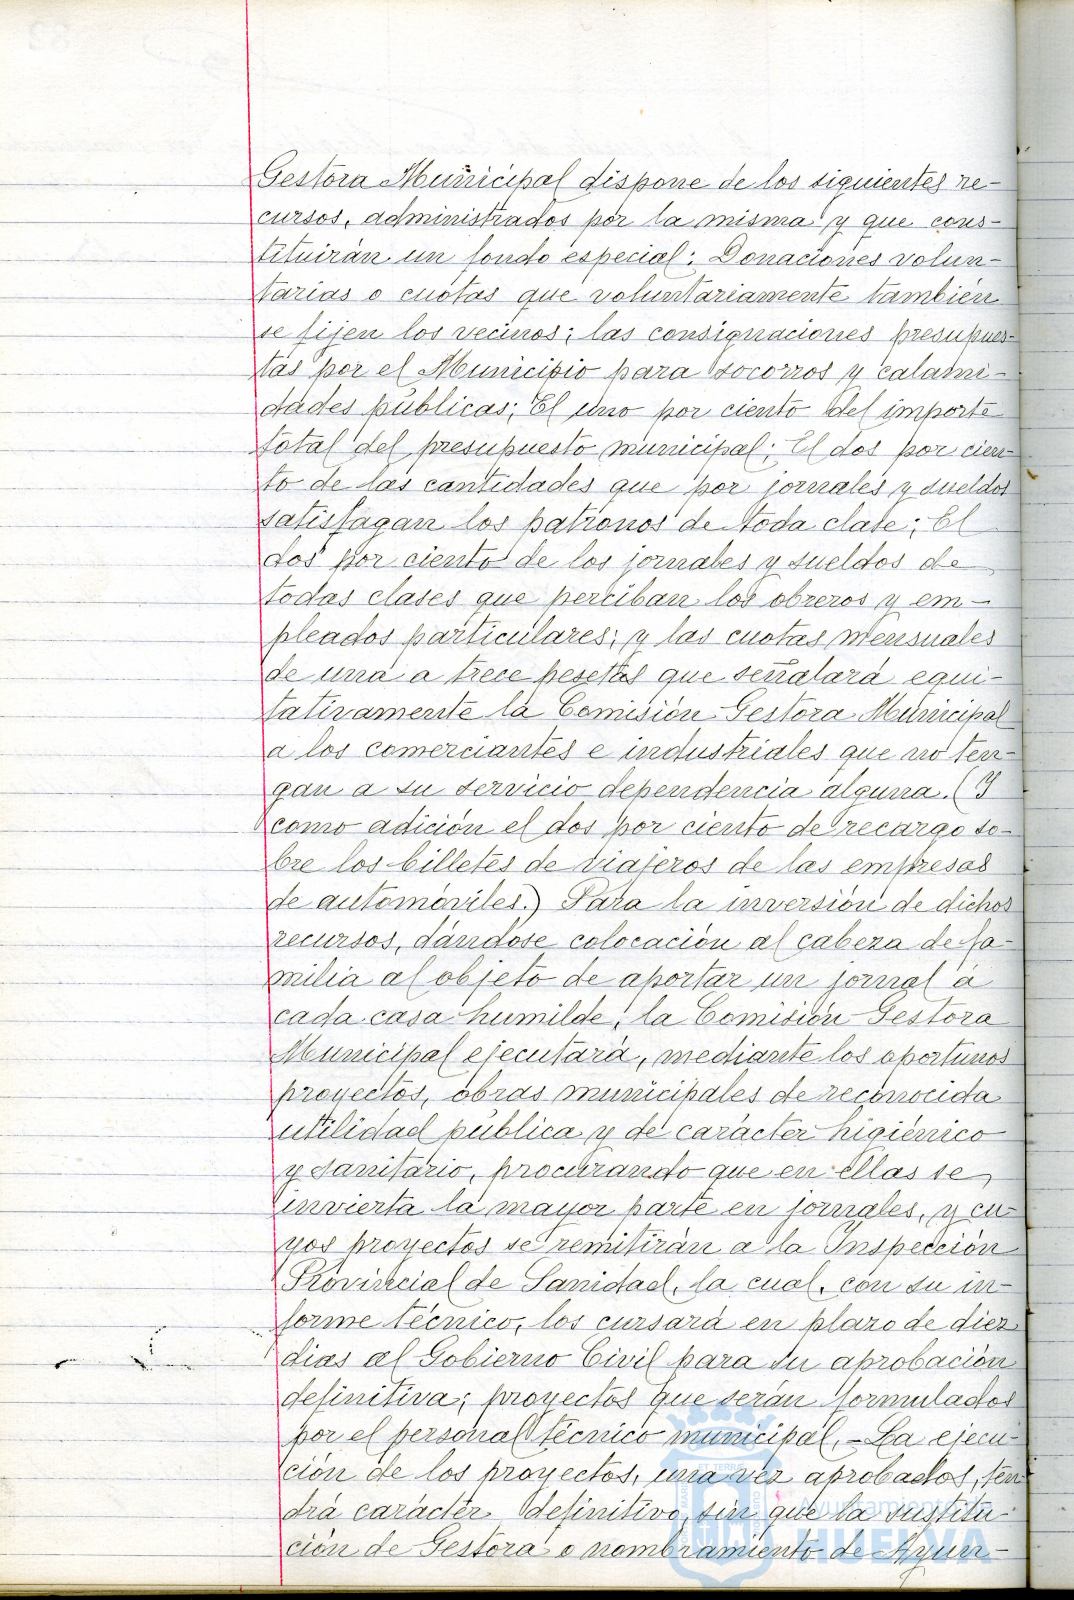 Gestora Municipal dispone de los siguientes re-
cursos, administrados por la misma y que cons-
tituirán un fondo especial: Donaciones volun-
tarias o cuotas que voluntariamente también
se fijen los vecinos; las consignaciones presupues-
tas por el Municipio para socorros y calami-
dades públicas; El uno por ciento del importe
total del presupuesto municipal; El dos por cien-
to de las cantidades que por jornales y sueldos
satisfagan los patronos de toda clase; El
dos por ciento de los jornales y sueldos de
todas clases que perciban los obreros y em-
pleados particulares; y las cuotas mensuales
de una a trece pesetas que señalará equi-
tativamente la Comisión Gestora Municipal
a los comerciantes e industriales que no ten-
gan a su servicio dependencia alguna. (Y
como adición el dos por ciento de recargo so-
bre los billetes de viajeros de las empresas
de automóviles.) Para la inversión de dichos
recursos, dándose colocación al cabeza de fa-
milia al objeto de aportar un jornal á
cada casa humilde, la Comisión Gestora
Municipal ejecutará, mediante los oportunos
proyectos, obras municipales de reconocida
utilidad pública y de carácter higiénico
y sanitario, procurando que en ellas se
invierta la mayor parte en jornales, y cu-
yos proyectos se remitirán a la Inspección
Provincial de Sanidad, la cual, con su in-
forme técnico, los cursará en plazo de diez
dias al Gobierno Civil para su aprobación
definitiva; proyectos que serán formulados
por el personal técnico municipal.- La ejecu-
ción de los proyectos, una vez aprobados, ten
drá carácter definitivo, sin que la sustitu-
ción de Gestora o nombramiento de Ayun-
Ayuntamiento de
HUELVA